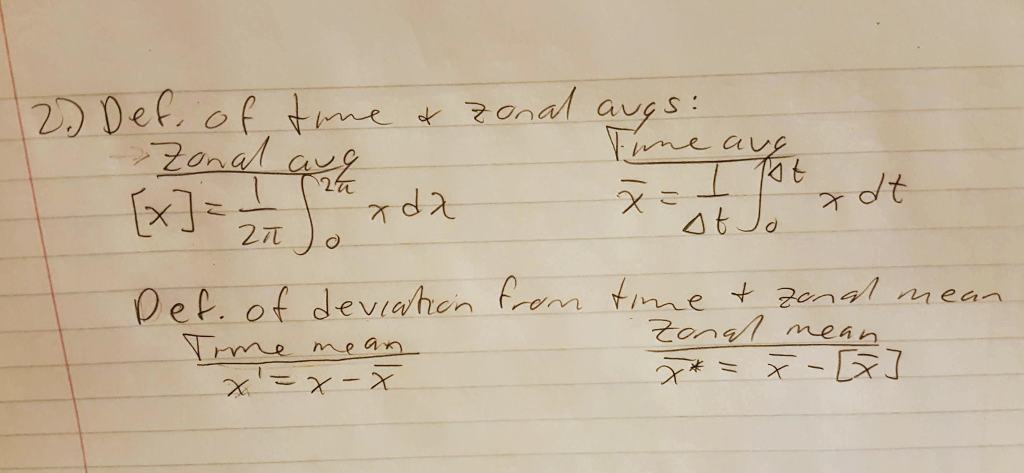 2.) Def. of time & zonal avgs:
→ Zonal avg Time avg
[x] = 1/2π ∫₀^2π x dλ x̄ = 1/Δt ∫₀^Δt x dt
Def. of deviation from time + zonal mean
Time mean Zonal mean
x' = x - x̄ x̄* = x̄ - [x̄]